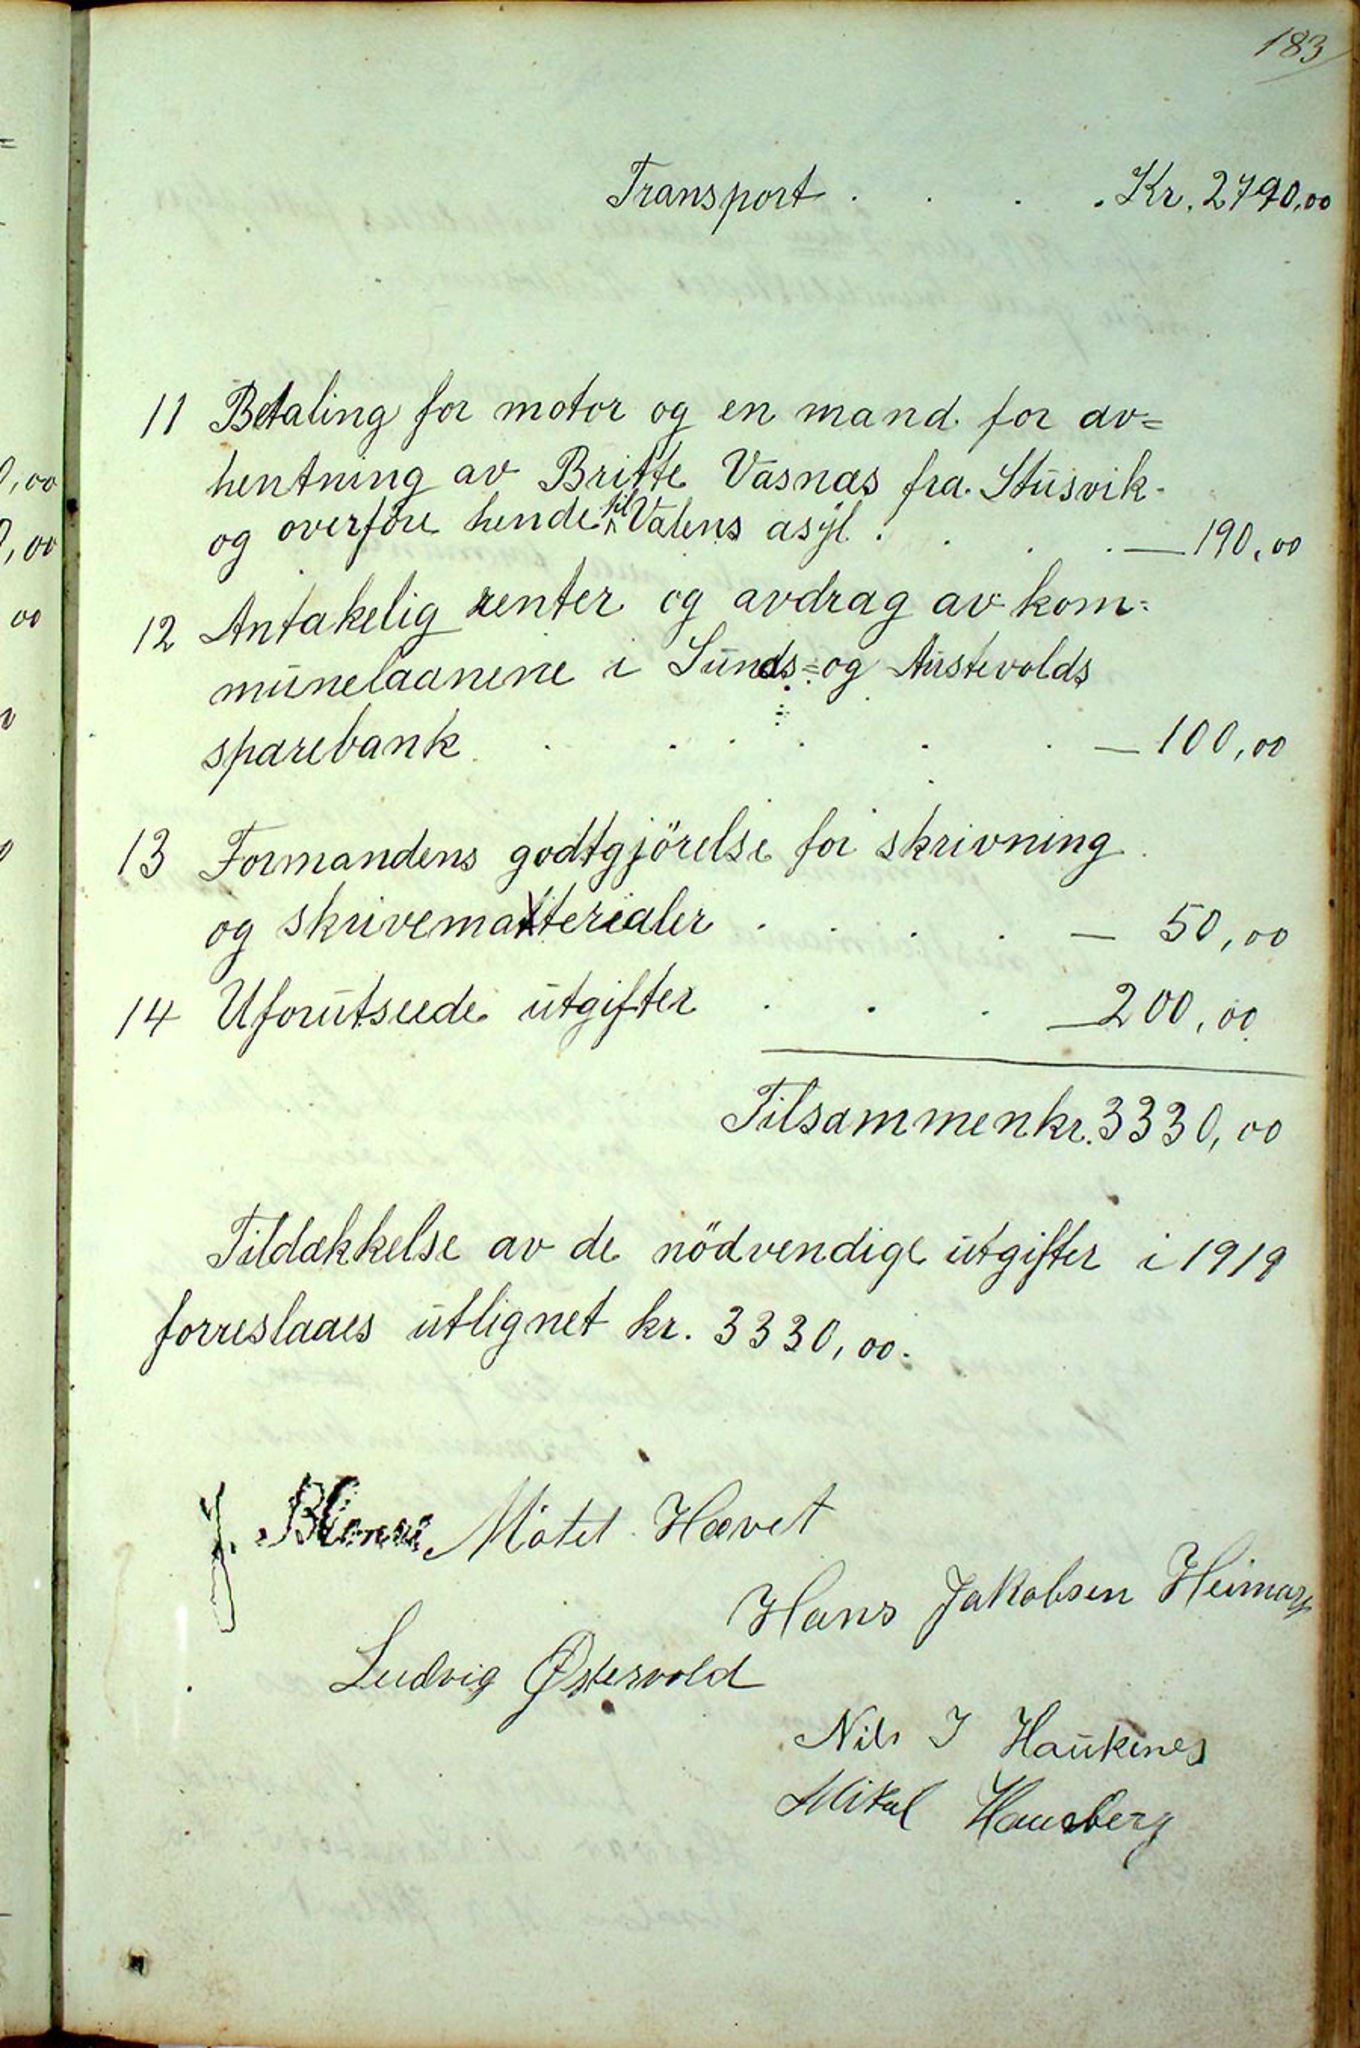 183
Transport . . . . Kr. 2790,00
11 Betaling for motor og en mand for av=
hentning av Britte Vasnæs fra Stusvik
og overføre hende til Valens asyl . . . . — 190,00
12 Antakelig renter og avdrag av kom=
munelaanene i Sunds= og Austevolds
sparebank . . . . . . — 100,00
13 Formandens godtgjörelse for skrivning
og skrivematerialer . . . . — 50,00
14 Uforutseede utgifter . . . — 200,00
Tilsammen kr. 3330,00
Tildækkelse av de nödvendige utgifter i 1919
forreslaaes utlignet kr. 3330,00.
J. Blænes Motet Hævet
Hans Jakobsen Heimark
Ludvig Østervold
Nils J Haukenes
Mikal Haukeberg
0,00
0,00
00